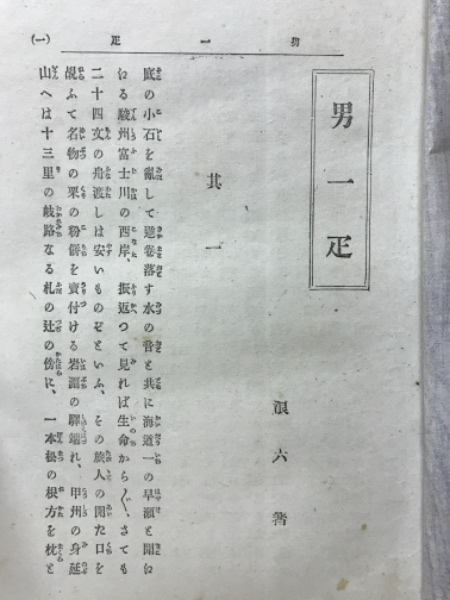 男一疋 (一)
男一疋
浪六著
其一
底の小石を亂して逆卷落す水の音と共に海道一の早瀬と聞は
ねる駿州富士川の西岸、振返つて見れば生命から〴〵、さても
二十四文の舟渡しは安いものぞといふ、その旅人の開た口を
覘ふて名物の栗の粉餅を賣付ける岩淵の驛端れ、甲州の身延
山へは十三里の岐路なる札の辻の傍に、一本松の根方を枕と